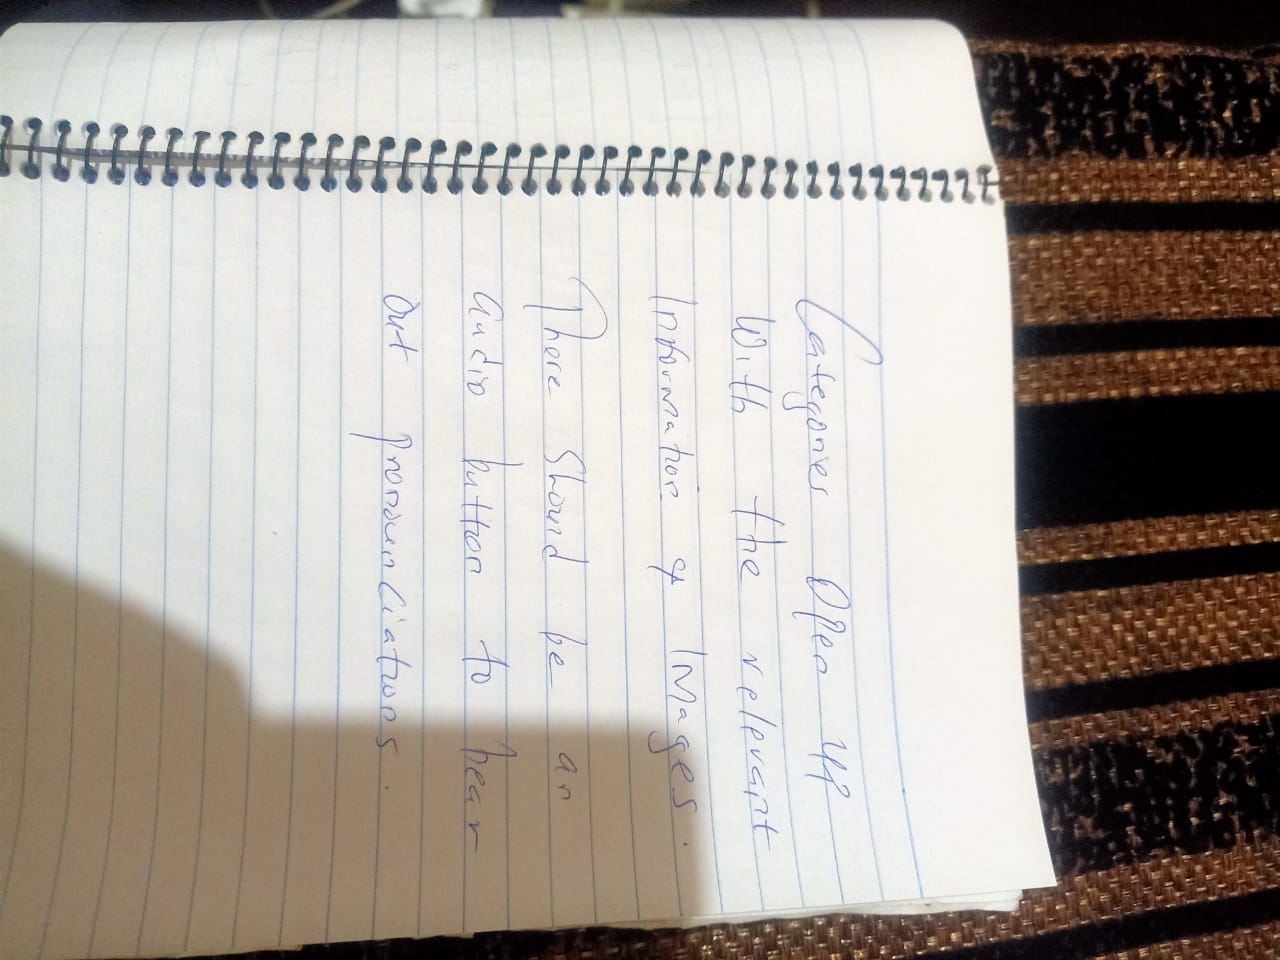 Categories Open up
With the relevant
Information & Images.
There Should be an
audio button to hear
Out pronounciations.